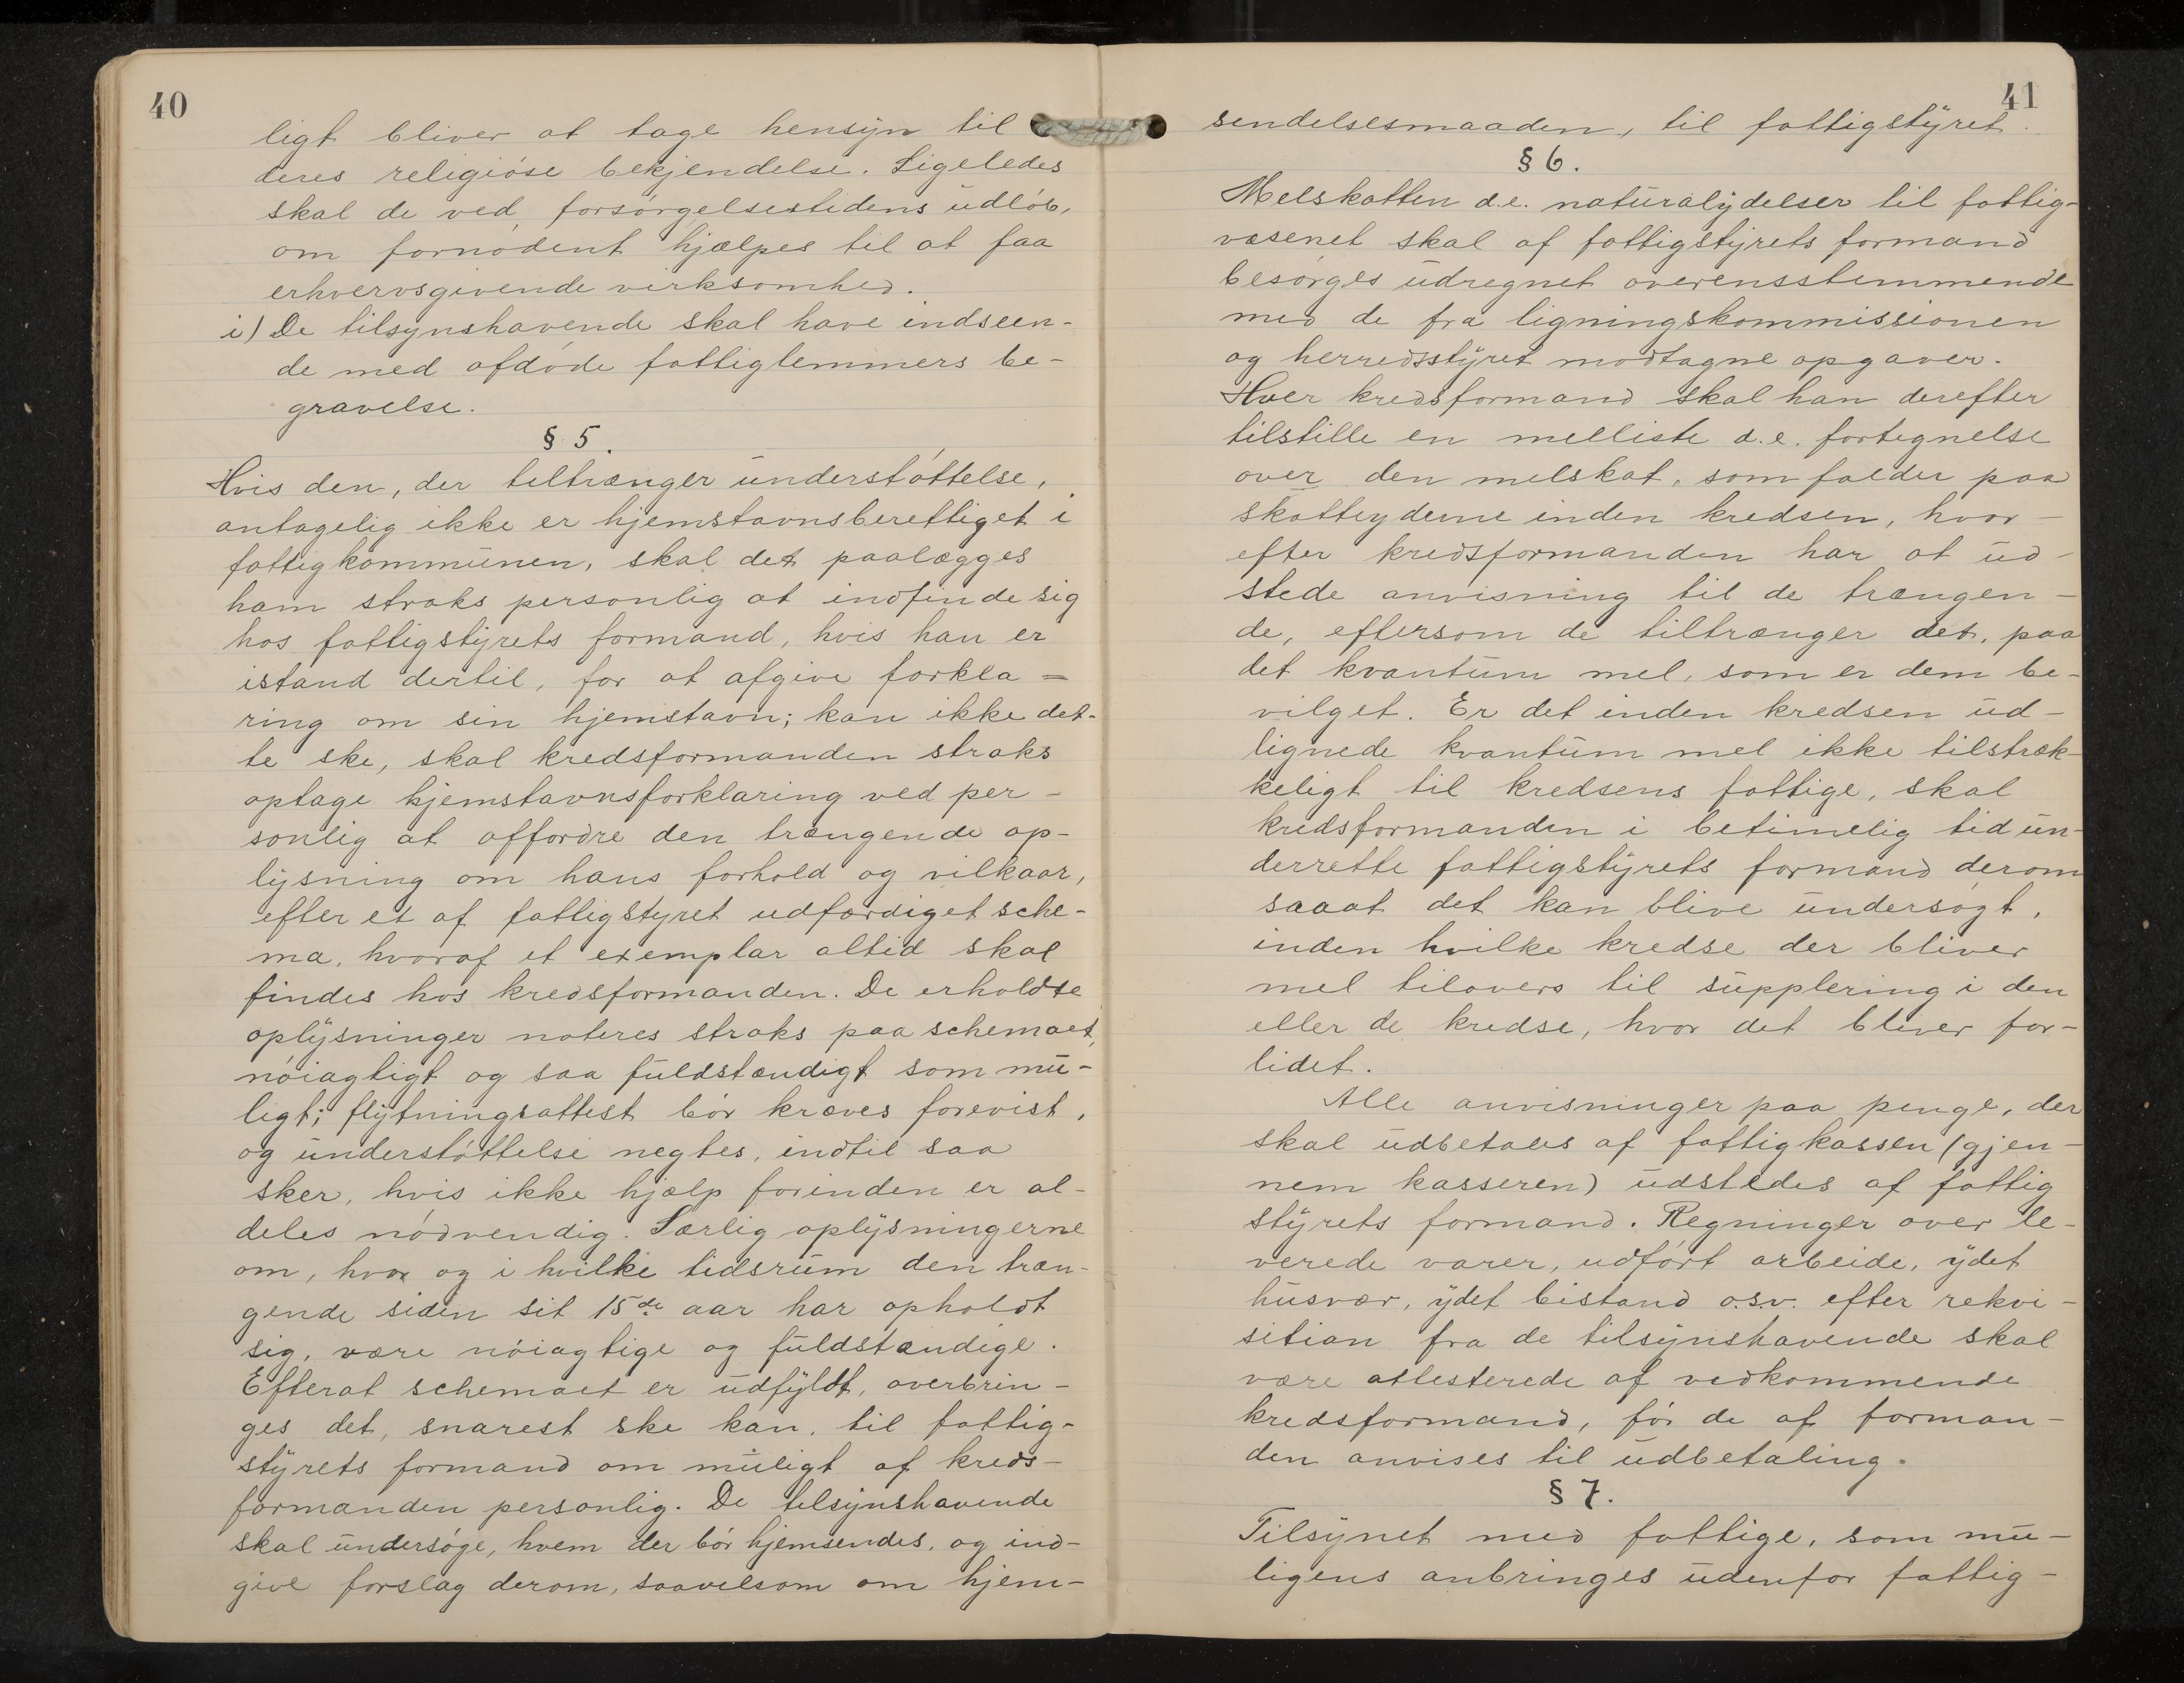 40
ligt bliver at tage hensyn til
deres religiöse bekjendelse. Ligeledes
skal de ved forsörgelsestidens udlöb,
om fornödent hjælpes til at faa
erhvervsgivende virksomhed.
i) De tilsynshavende skal have indseen-
de med afdöde fattiglemmers be-
gravelse.
§ 5.
Hvis den, der tiltrænger understöttelse,
antagelig ikke er hjemstavnsberettiget i
fattigkommunen, skal det paalægges
ham straks personlig at indfinde sig
hos fattigstyrets formand, hvis han er
istand dertil, for at afgive forkla=
ring om sin hjemstavn; kan ikke det-
te ske, skal kredsformanden straks
optage hjemstavnsforklaring ved per-
sonlig at affordre den trængende op-
lysning om hans forhold og vilkaar,
efter et af fattigstyret udfærdiget sche-
ma, hvoraf et exemplar altid skal
findes hos kredsformanden. De erholdte
oplysninger noteres straks paa schemaet,
nöiagtigt og saa fuldstændigt som mu-
ligt; flytningsattest bör kræves forevist,
og understöttelse negtes, indtil saa
sker, hvis ikke hjælp forinden er al-
deles nödvendig. Særlig oplysningerne
om, hvor og i hvilke tidsrum den træn-
gende siden sit 15de aar har opholdt
sig, være nöiagtige og fuldstændige.
Efterat schemaet er udfyldt, overbrin-
ges det, snarest ske kan, til fattig-
styrets formand om muligt af kreds-
formanden personlig. De tilsynshavende
skal undersöge, hvem der bör hjemsendes, og ind-
give forslag derom, saavelsom om hjem-
41
sendelsesmaaden, til fattigstyret.
§ 6.
Melskatten d.e. naturalydelser til fattig-
væsenet skal af fattigstyrets formand
besörges udregnet overensstemmende
med de fra ligningskommissionen
og herredsstyret modtagne opgaver.
Hver kredsformand skal han derefter
tilstille en melliste d.e. fortegnelse
over den melskat, som falder paa
skatteyderne inden kredsen, hvor-
efter kredsformanden har at ud-
stede anvisning til de trængen-
de, eftersom de tiltrænger det, paa
det kvantum mel, som er dem be-
vilget. Er det inden kredsen ud-
lignede kvantum mel ikke tilstræk-
keligt til kredsens fattige, skal
kredsformanden i betimelig tid un-
derrette fattigstyrets formand derom
saaat det kan blive undersögt,
inden hvilke kredse der bliver
mel tilovers til supplering i den
eller de kredse, hvor det bliver for-
lidet.
Alle anvisninger paa penge, der
skal udbetales af fattigkassen (gjen-
nem kasseren) udstedes af fattig
styrets formand. Regninger over le-
verede varer, udfört arbeide, ydet
husvær, ydet bistand o.s.v. efter rekvi-
sition fra de tilsynshavende skal
være attesterede af vedkommende
kredsformand, för de af forman-
den anvises til udbetaling.
§ 7.
Tilsynet med fattige, som mu-
ligens anbringes udenfor fattig-